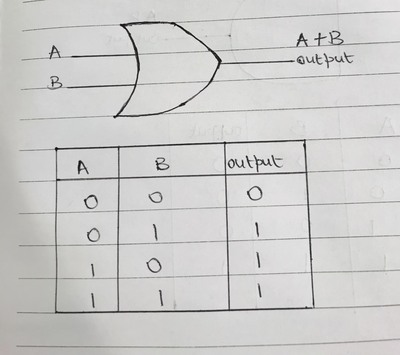 A
B
A+B
output
A B output
0 0 0
0 1 1
1 0 1
1 1 1